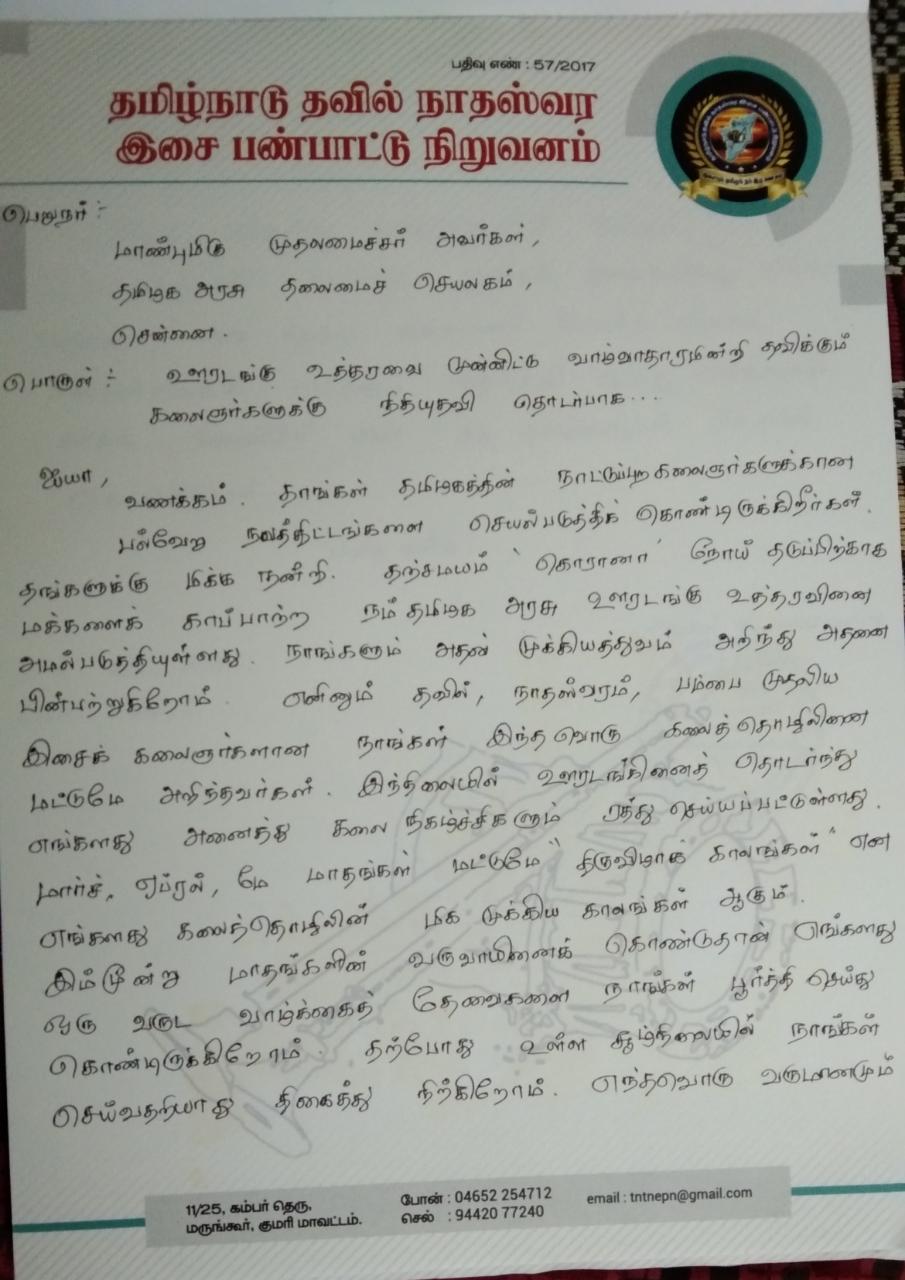 பதிவு எண் : 57/2017
தமிழ்நாடு தவில் நாதஸ்வர
இசை பண்பாட்டு நிறுவனம்
பெறுநர் :-
மாண்புமிகு முதலமைச்சர் அவர்கள்,
தமிழக அரசு தலைமைச் செயலகம்,
சென்னை.
பொருள் :- ஊரடங்கு உத்தரவை முன்னிட்டு வாழ்வாதாரமின்றி தவிக்கும்
கலைஞர்களுக்கு நிதியுதவி தொடர்பாக...
ஐயா,
வணக்கம். தாங்கள் தமிழகத்தின் நாட்டுப்புற கலைஞர்களுக்கான
பல்வேறு நலத்திட்டங்களை செயல்படுத்திக் கொண்டிருக்கிறீர்கள்.
தங்களுக்கு மிக்க நன்றி. தற்சமயம் 'கொரானா' நோய் தடுப்பிற்காக
மக்களைக் காப்பாற்ற நம் தமிழக அரசு ஊரடங்கு உத்தரவினை
அமல்படுத்தியுள்ளது. நாங்களும் அதன் முக்கியத்துவம் அறிந்து அதனை
பின்பற்றுகிறோம். எனினும் தவில், நாதஸ்வரம், பம்பை முதலிய
இசைக் கலைஞர்களான நாங்கள் இந்தவொரு கலைத்தொழிலினை
மட்டுமே அறிந்தவர்கள். இந்நிலையில் ஊரடங்கினைத் தொடர்ந்து
எங்களது அனைத்து கலை நிகழ்ச்சிகளும் ரத்து செய்யப்பட்டுள்ளது.
மார்ச், ஏப்ரல், மே மாதங்கள் மட்டுமே "திருவிழாக் காலங்கள்" என
எங்களது கலைத்தொழிலின் மிக முக்கிய காலங்கள் ஆகும்.
இம்மூன்று மாதங்களின் வருவாயினைக் கொண்டுதான் எங்களது
ஒரு வருட வாழ்க்கைத் தேவைகளை நாங்கள் பூர்த்தி செய்து
கொண்டிருக்கிறோம். தற்போது உள்ள சூழ்நிலையில் நாங்கள்
செய்வதறியாது திகைத்து நிற்கிறோம். எந்தவொரு வருமானமும்
11/25, கம்பர் தெரு,
மருங்கூர், குமரி மாவட்டம்.
போன் : 04652 254712
செல் : 94420 77240
email : tntnepn@gmail.com